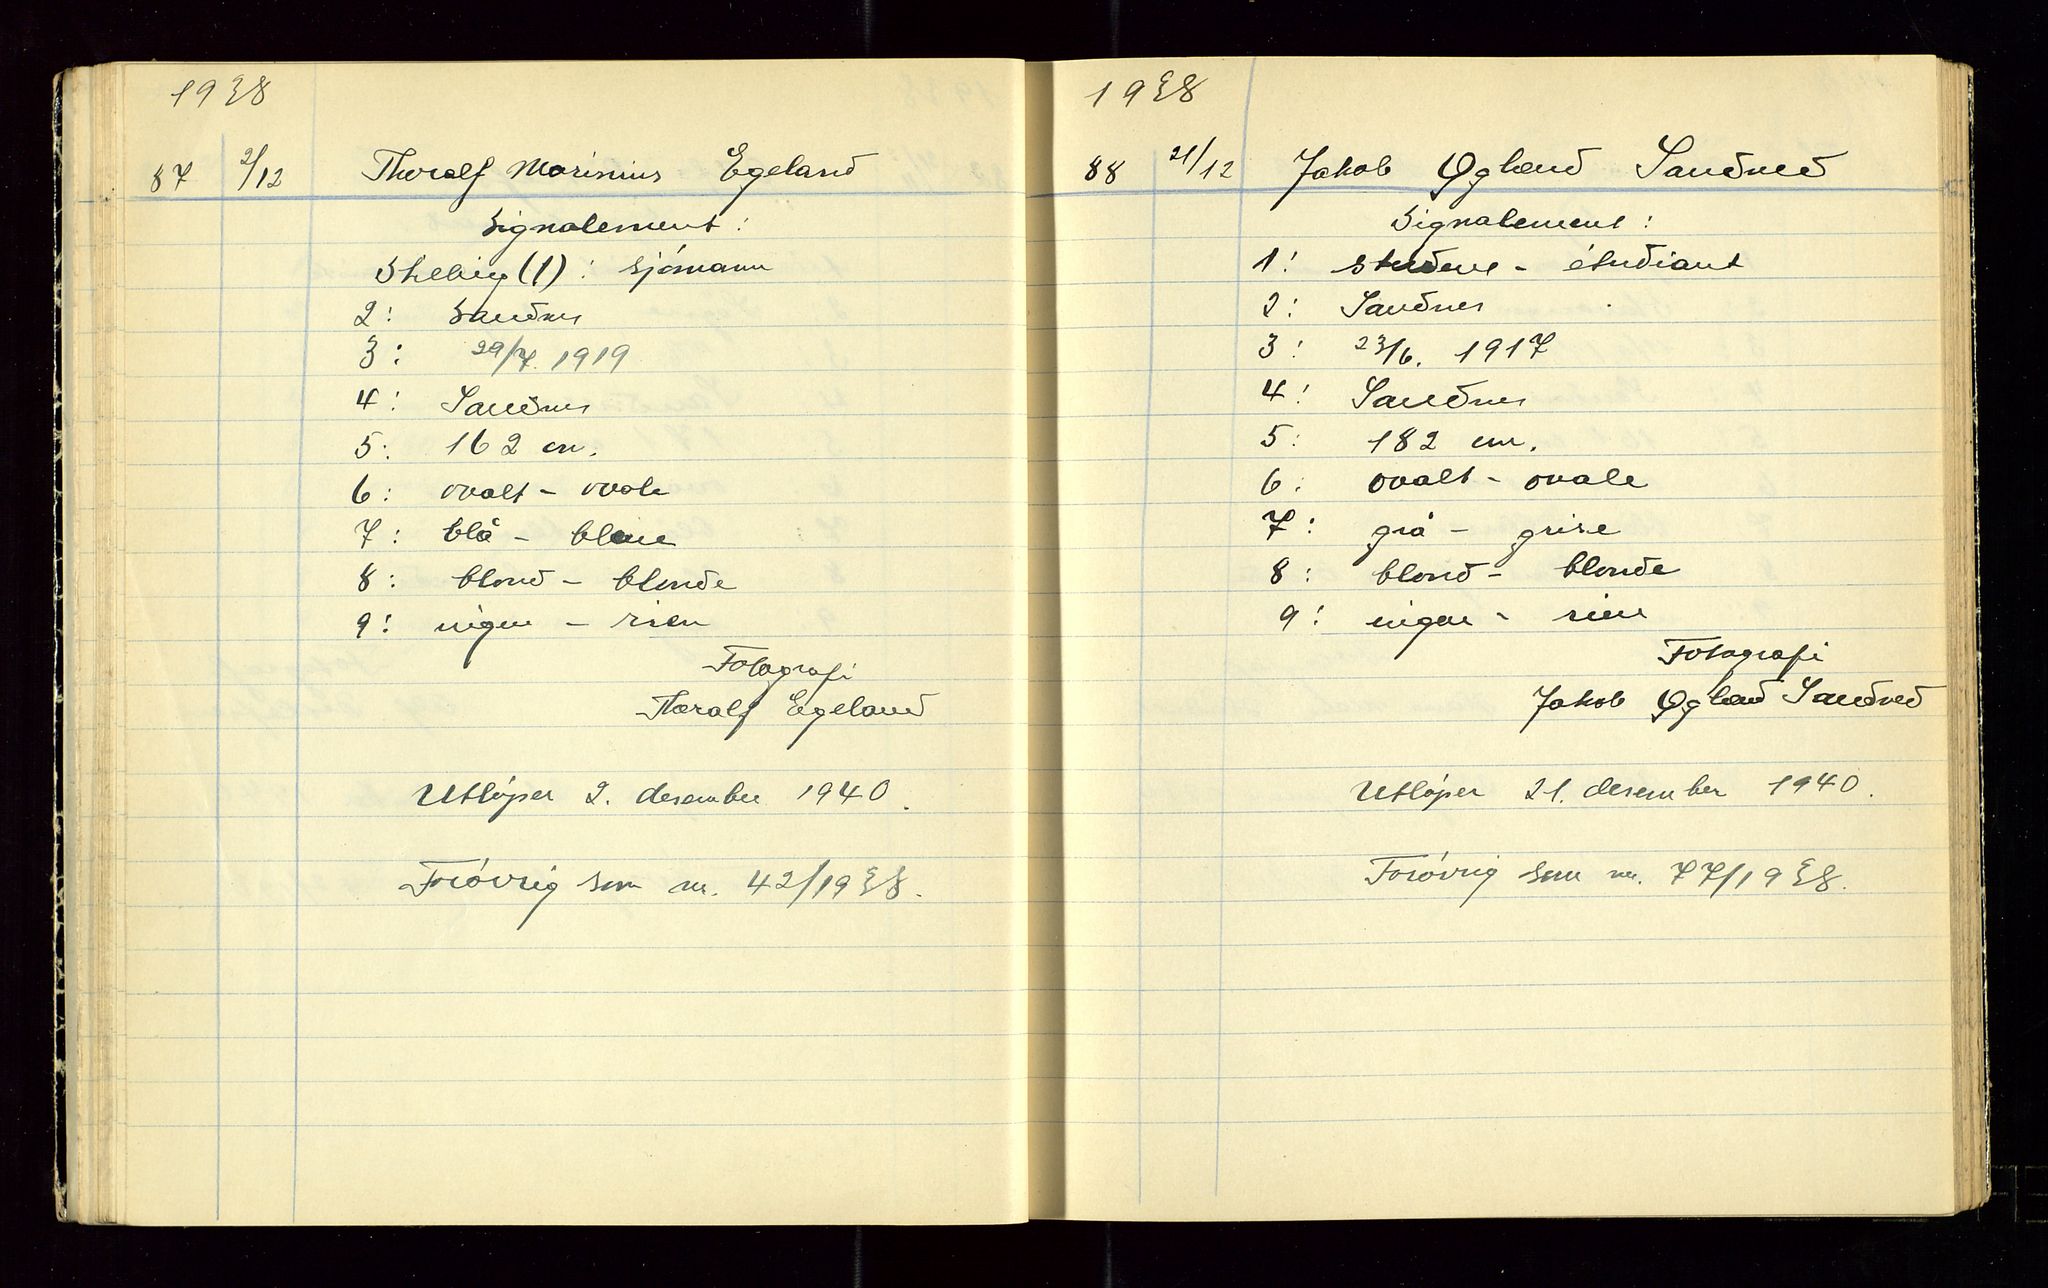 1938
87 2/12 Thoralf Marinius Egeland
Signalement:
Stilling (1): sjömann
2: Sandnes
3: 29/7. 1919
4: Sandnes
5: 162 cm.
6: ovalt - ovale
7: blå - bleue
8: blond - blonde
9: ingen - rien
Fotografi
Thoralf Egeland
Utløper 2. desember 1940.
Forövrig som nr. 42/1938.
1938
88 21/12 Jakob Øglænd Sandved
Signalement:
1: student - étudiant
2: Sandnes
3: 23/6. 1917
4: Sandnes
5: 182 cm.
6: ovalt - ovale
7: grå - grise
8: blond - blonde
9: ingen - rien
Fotografi
Jakob Øglænd Sandved
Utløper 21. desember 1940.
Forövrig som nr. 77/1938.